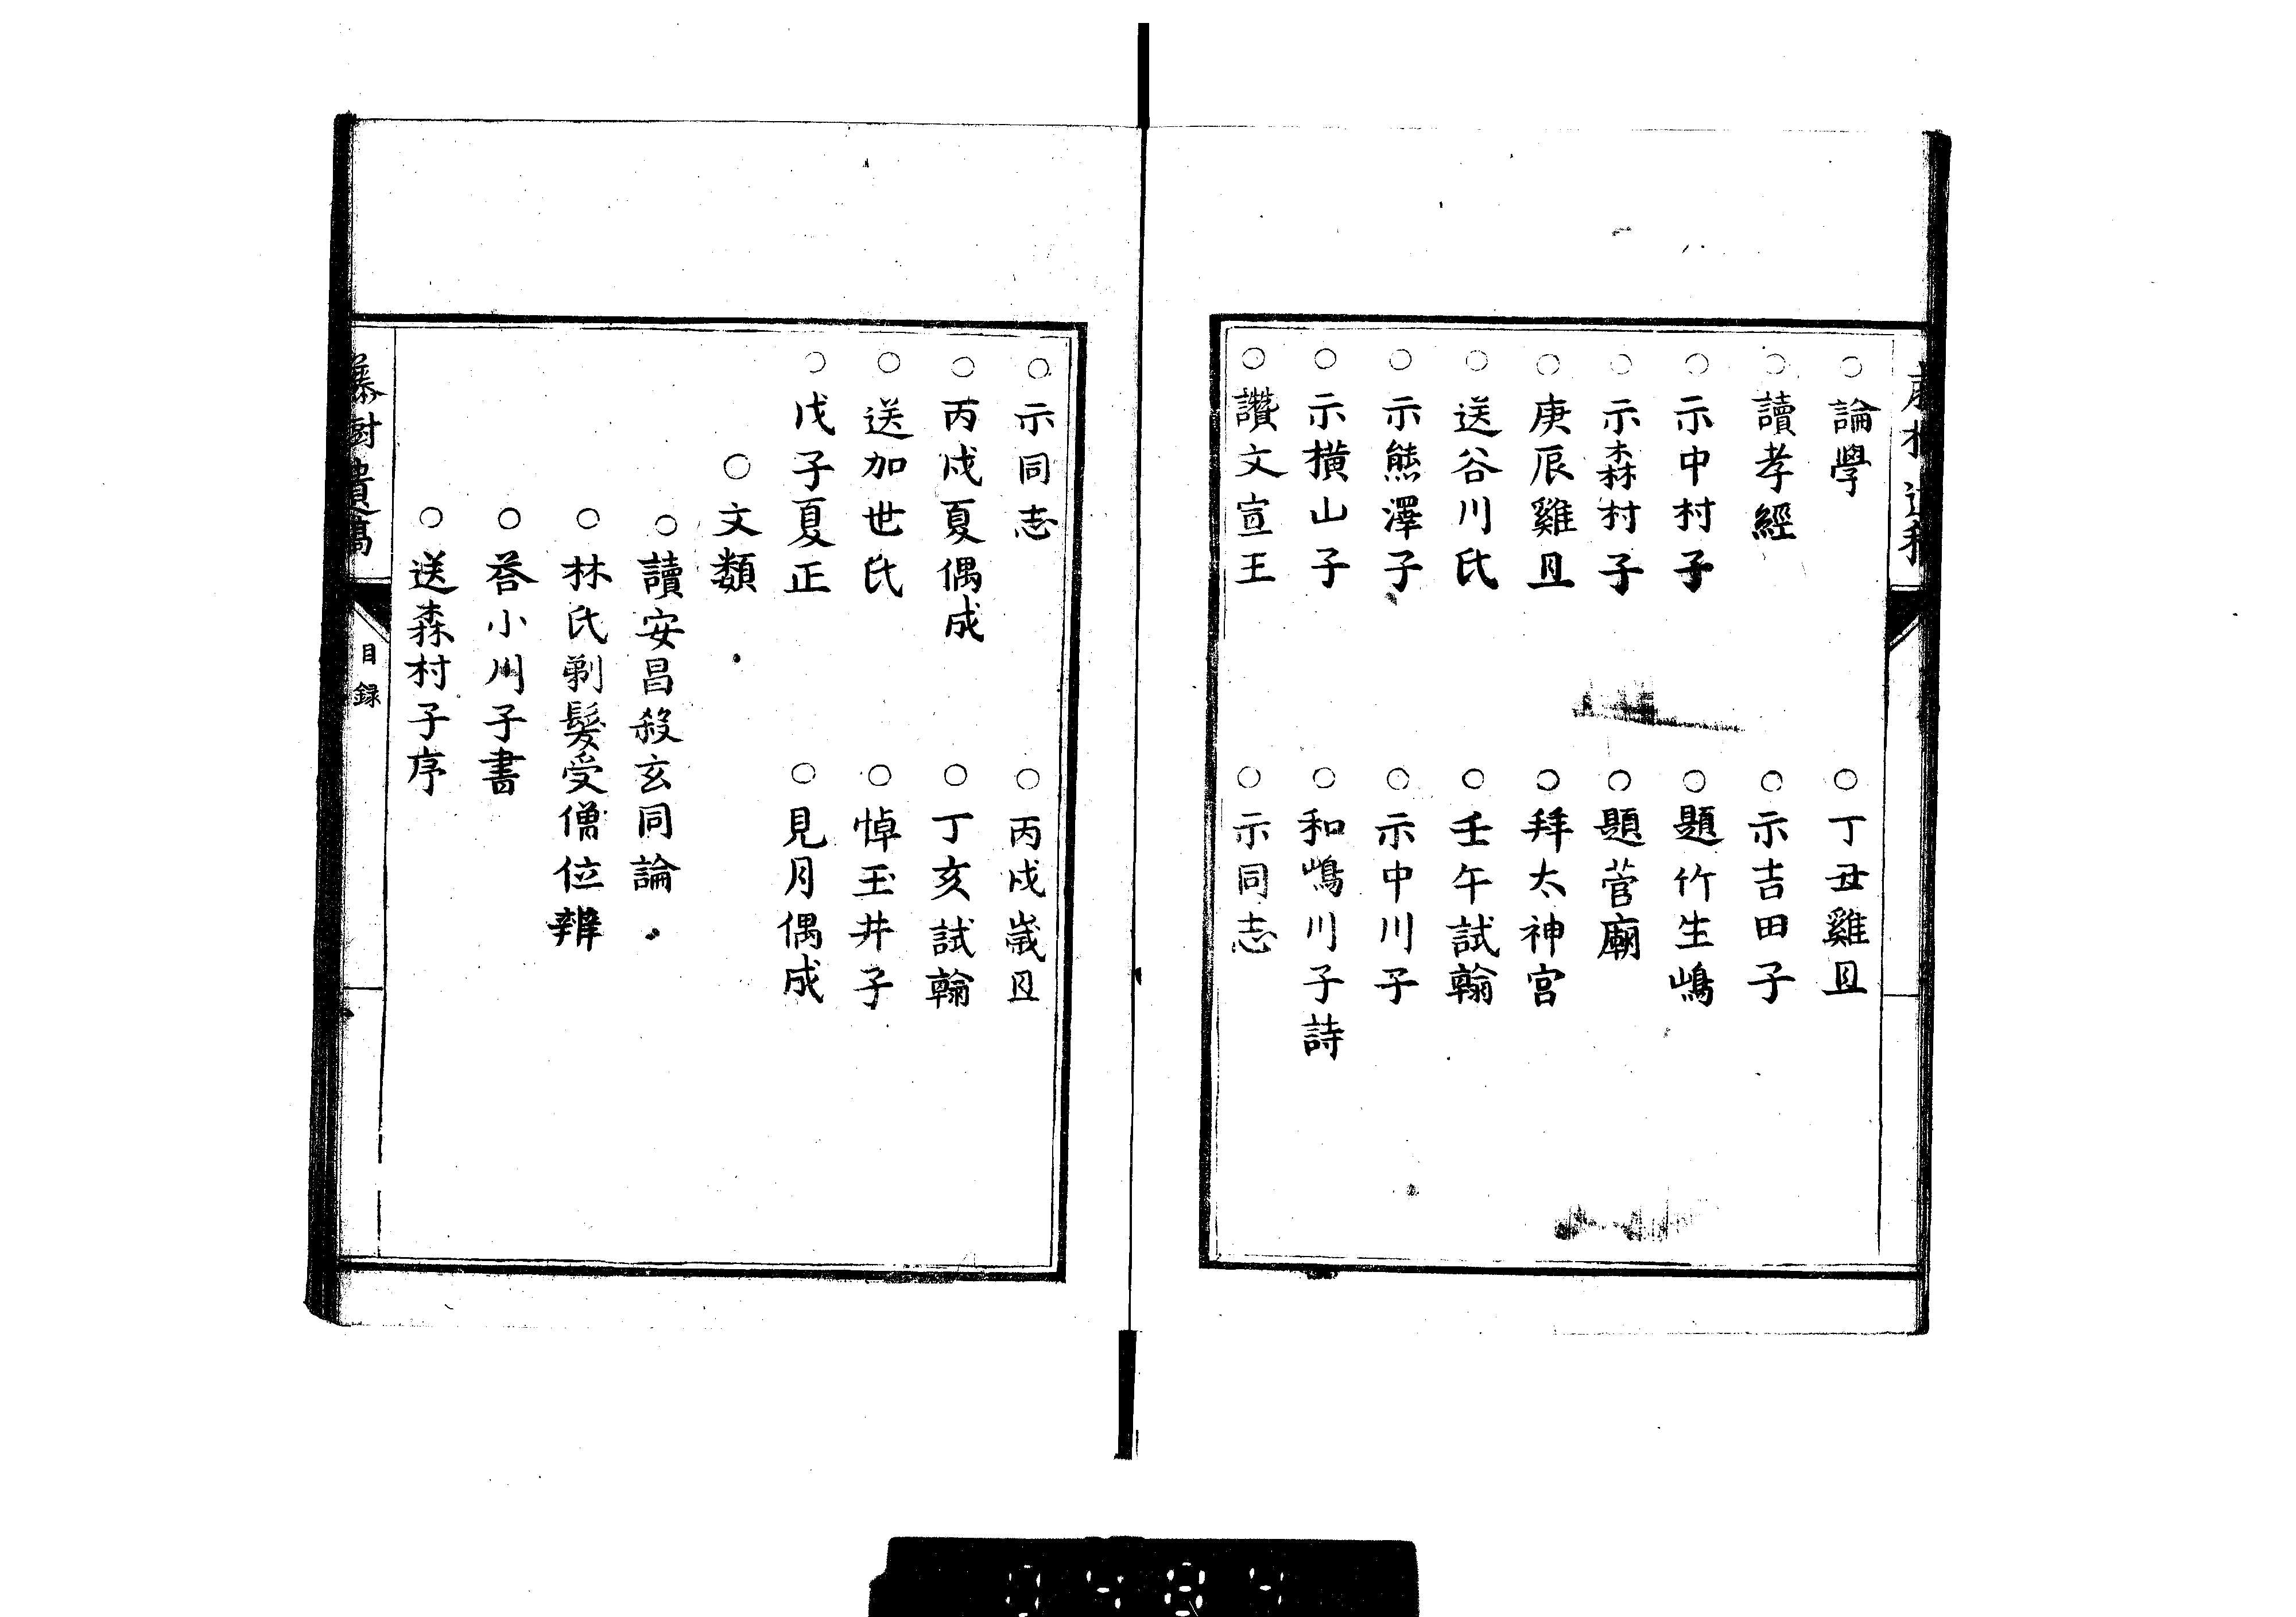 ○論學　○丁丑雞旦
○讀孝經　○示吉田子
○示中村子　○題竹生嶋
○示森村子　○題菅廟
○庚辰雞旦　○拜太神宮
○送谷川氏　○壬午試翰
○示熊澤子　○示中川子
○示橫山子　○和嶋川子詩
○讚文宣王　○示同志
○示同志　○丙戌歲旦
○丙戌夏偶成　○丁亥試翰
○送加世氏　○悼玉井子
○戊子夏正　○見月偶成
○文類
○讀安昌殺玄同論
○林氏剃髮受僧位辨
○荅小川子書
○送森村子序
目錄